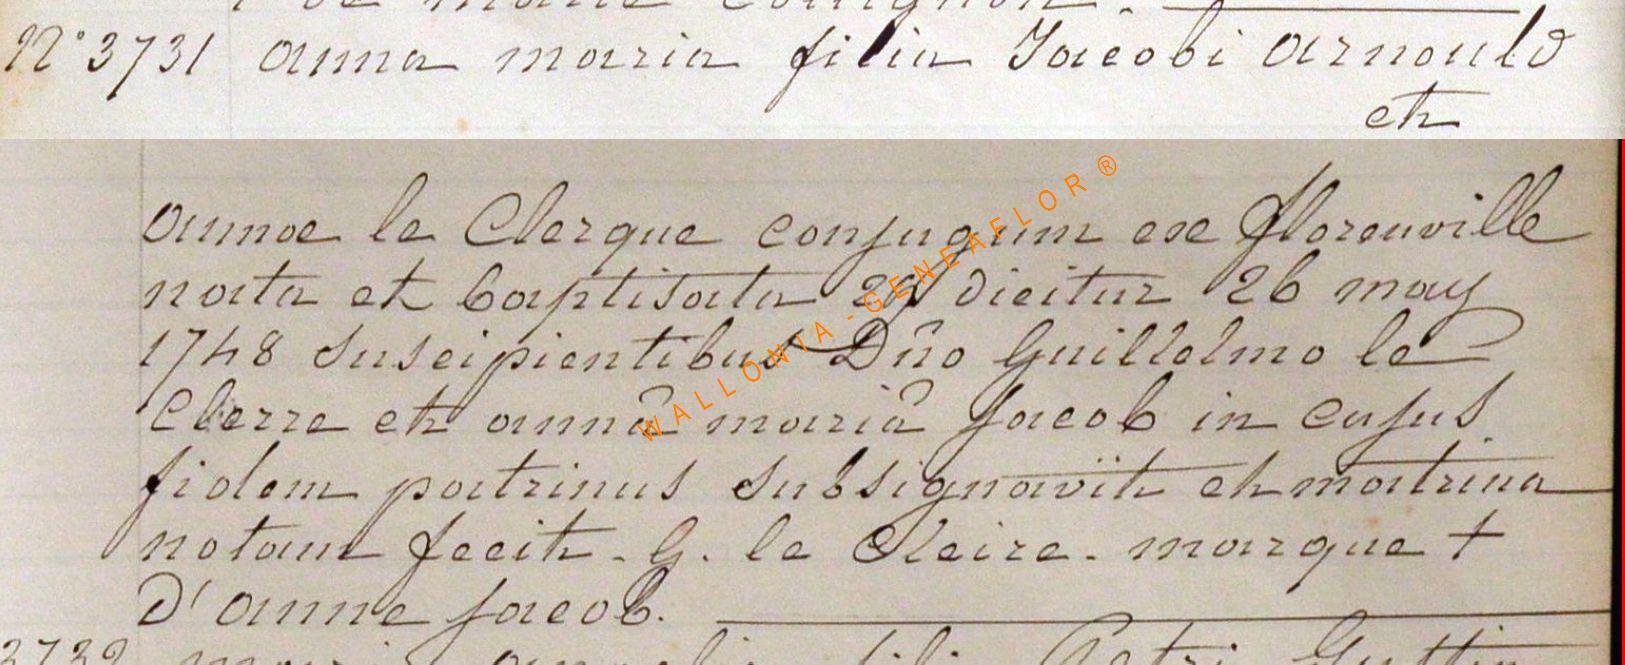 N° 3731 anna maria filia Jacobi arnould
et
annae le Clerque conjugum ex florenville
nata et baptisata dicitur 26 may
1748 suscipientibus Dño Guillelmo le
Clerre et annâ mariâ Jacob in cujus
fidem patrinus subsignavit et matrina
notam fecit. G. le Cleire. marque +
D'anne Jacob.
3732
WALLONIA-GENEAFLOR®